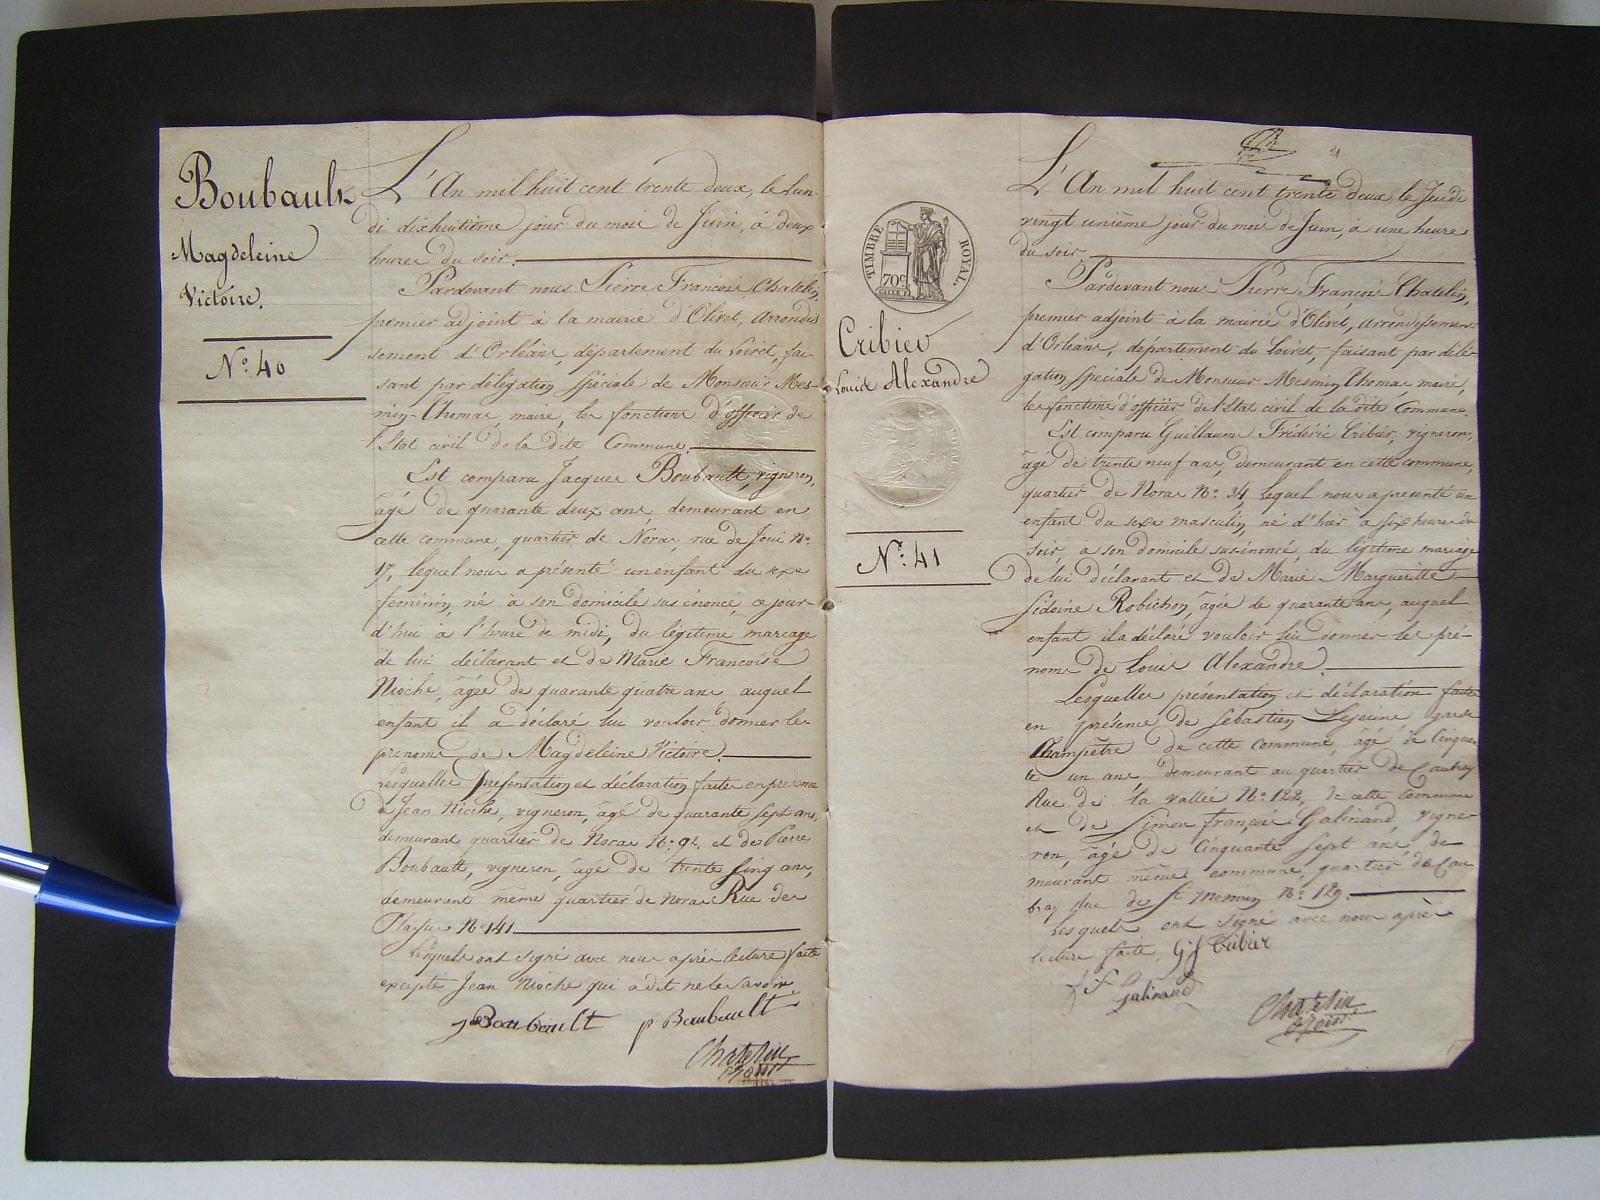 Boubault
Magdeleine
Victoire.
N.° 40
L'An mil huit cent trente deux, le Lun-
di dixhuitième jour du mois de Juin, à deux
heures du soir.
Pardevant nous Pierre François Chatelin,
premier adjoint à la mairie d'Olivet, arrondis
sement d'Orléans, département du Loiret, fai-
sant par délégation spéciale de Monsieur Mes-
min-Thomas, maire, les fonctions d'officier de
l'Etat civil de la dite Commune.
Est comparu Jacques Boubault, vigneron,
âgé de quarante deux ans, demeurant en
cette commune, quartier de Noras, rue de Joui N.°
17, lequel nous a présenté un enfant du sexe
féminin, né à son domicile sus énoncé, ce jour-
d'hui à l'heure de midi, du légitime mariage
de lui déclarant et de Marie Françoise
Nioche, âgée de quarante quatre ans, auquel
enfant il a déclaré lui vouloir donner les
prenoms de Magdeleine Victoire.
Lesquelles présentation et déclaration faites en présence
de Jean Nioche, vigneron, âgé de quarante sept ans,
demeurant quartier de Noras N.° 92, et de Pierre
Boubault, vigneron, âgé de trente cinq ans,
demeurant même quartier de Noras Rue des
N.° 141
Lesquels ont signé avec nous après lecture faite
excepté Jean Nioche qui a dit ne le savoir.
J Boubault p Boubault
Chatelin
adjoint
TIMBRE ROYAL.
70c
Cribier
Louis Alexandre
N.° 41
L'An mil huit cent trente deux le Jeudi
vingt unième jour du mois de Juin, à une heure
du soir.
Pardevant nous Pierre François Chatelin,
premier adjoint à la mairie d'Olivet, arrondissement
d'Orléans, département du Loiret, faisant par délé-
gation spéciale de Monsieur Mesmin Thomas, maire,
les fonctions d'officier de l'Etat civil de la dite Commune.
Est comparu Guillaume Frédéric Cribier, vigneron,
âgé de trente neuf ans, demeurant en cette commune,
quartier de Noras N.° 34, lequel nous a présenté un
enfant du sexe masculin, né d'hier à six heures du
soir, à son domicile susénoncé, du légitime mariage
de lui déclarant et de Marie Margueritte
Sidoine Robichon, âgée de quarante ans, auquel
enfant il a déclaré vouloir lui donner les pré-
noms de Louis Alexandre.
Lesquelles présentation et déclaration faites
en présence de Sébastien Lejeune, garde
Champêtre de cette commune, âgé de Cinquan
te un ans demeurant au quartier de Caubray
Rue de la vallée N.° 122, de cette commune
et de Simon françois Galinand, vigne-
ron, âgé de Cinquante Sept ans, de
meurant même commune, quartier de Cau
bray Rue de St Mesmin N.° 129.
Lesquels ont signé avec nous après
lecture faite, G f Cribier
S F
Galinand
Chatelin
adjoint